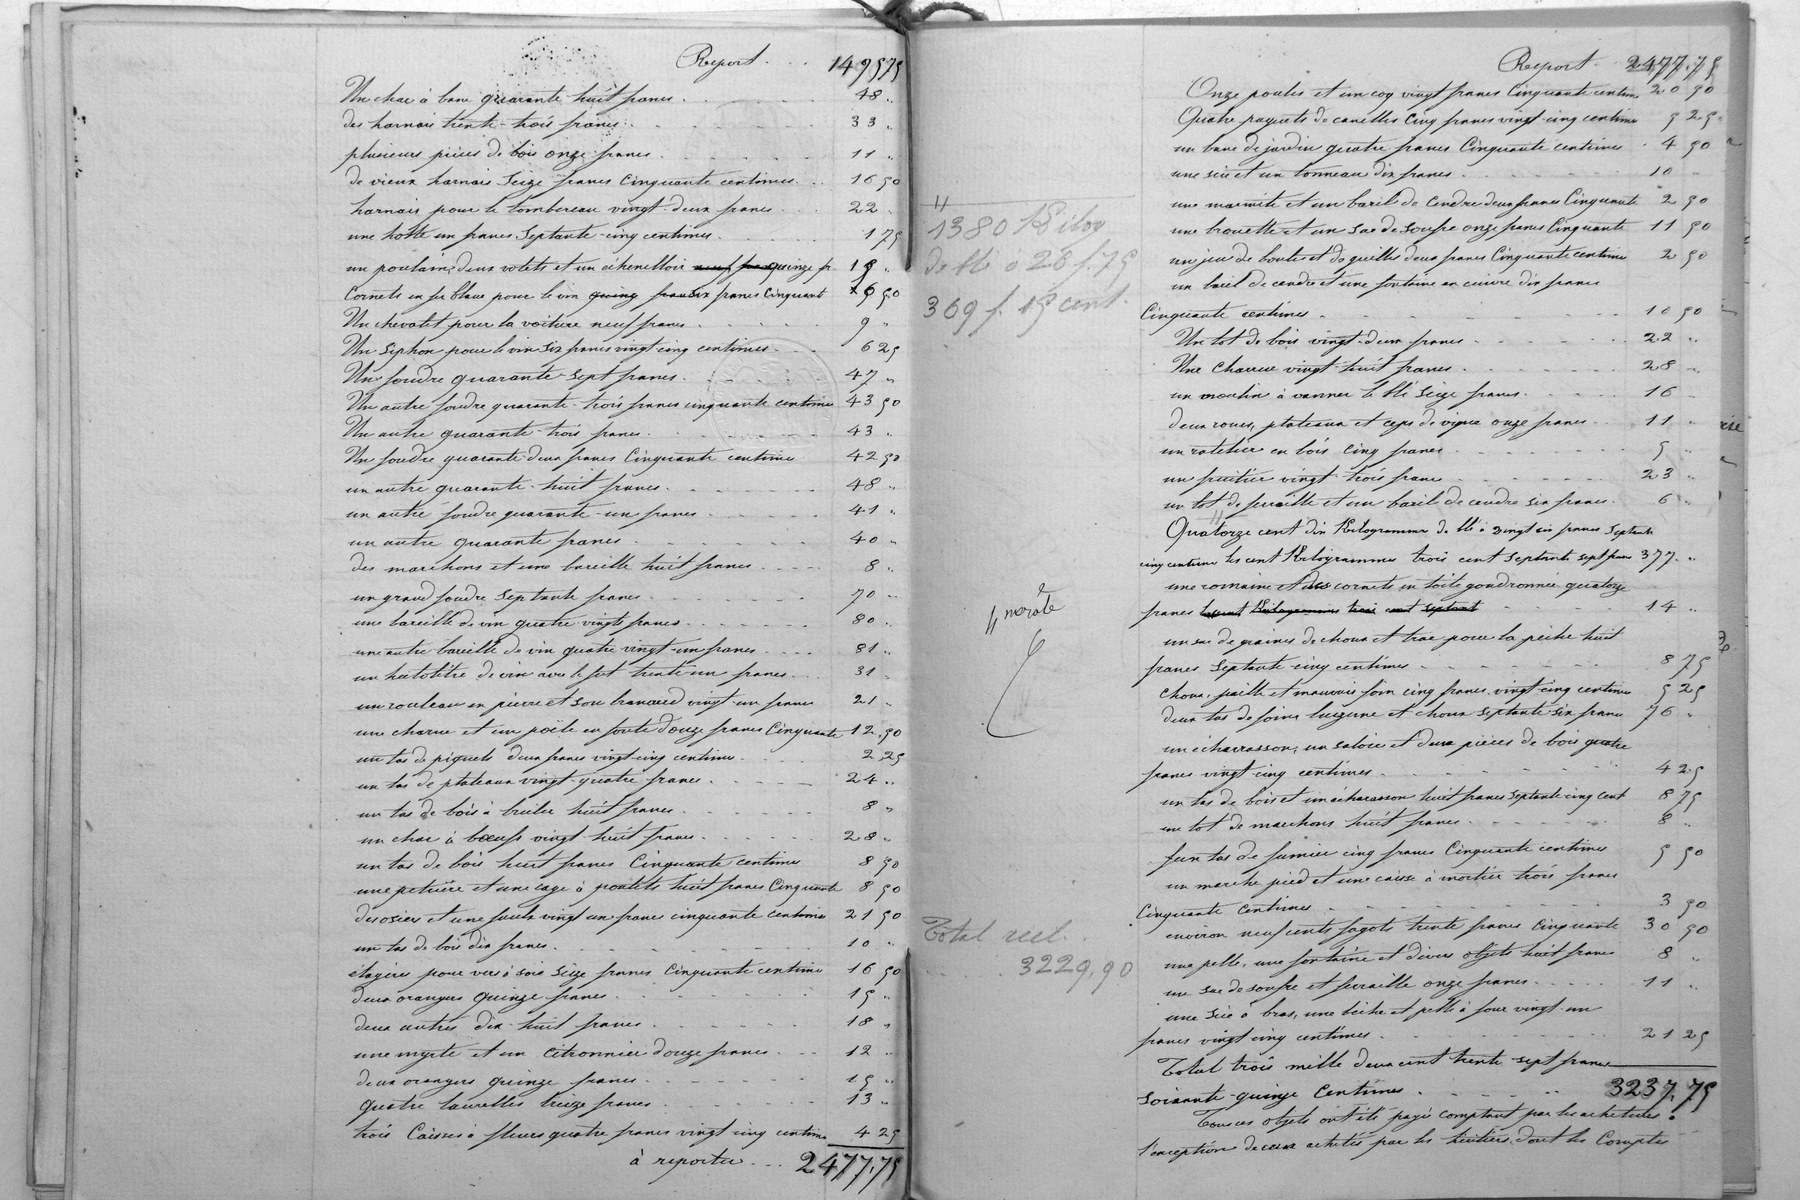 Report . . . 1495 75
Un char à banc quarante huit francs . 48 "
des harnais trente-trois francs . 33 "
plusieurs pièces de bois onze francs . 11 "
de vieux harnais Seize francs Cinquante centimes . 16 50
harnais pour le tombereau vingt-deux francs . 22 "
une hotte un francs Septante-cinq centimes . 1 75
un poulain, deux volets et un échenilloir quinze fr 15 "
Cornets en fer blanc pour le vin six francs Cinquant 6 50
Un chevalet pour la voiture neuf francs . 9 "
Un Siphon pour le vin Six francs vingt cinq centimes . 6 25
Un foudre quarante-sept francs . 47 "
Un autre foudre quarante-trois francs cinquante centime 43 50
Un autre quarante-trois francs . 43 "
Un foudre quarante-deux francs Cinquante centime 42 50
un autre quarante-huit francs . 48 "
un autre foudre quarante-un francs . 41 "
un autre quarante francs . 40 "
des marchons et une bareille huit francs . 8 "
un grand foudre Septante francs . 70 "
une bareille de vin quatre-vingts francs . 80 "
une autre bareille de vin quatre vingt-un francs . 81 "
un hectolitre de vin avec le fut trente-un francs . 31 "
un rouleau en pierre et son brancard vingt-un francs 21 "
une charrue et un poële en fonte douze francs Cinquante 12.50
un tas de piquets deux francs vingt-cinq centimes . 2.25
un tas de plateaux vingt-quatre francs . 24 "
un tas de bois à bruler huit francs . 8 "
un char à bœufs vingt-huit francs . 28 "
un tas de bois huit francs Cinquante centimes 8 50
une petrière et une cage à poulets huit francs Cinquante 8 50
des osiers et une vingt un francs cinquante centime 21 50
un tas de bois dix francs . 10 "
étagère pour vers à soie Seize francs Cinquante centime 16 50
deux orangers quinze francs . 15 "
deux autres dix-huit francs . 18 "
une myrte et un Citronnier douze francs . 12 "
deux orangers quinze francs . 15 "
quatre laurelles treize francs . 13 "
trois Caisses à fleurs quatre francs vingt cinq centime 4 25
à reporter . . . 2477.75
"
1380 Kilog
de blé à 26 f. 75
369 f. 15 cent.
4 morale
Total réel .
3229,90
Report . 2477.75
Onze poules et un coq vingt francs Cinquante centime 20 50
Quatre paquets de canelles Cinq francs vingt-cinq centime 5 25
un banc de jardin quatre francs Cinquante centimes . 4 50
une scie et un tonneau dix francs . 10 "
une marmite et un baril de Cendre deux francs Cinquante 2 50
une brouette et un sac de soufre onze francs Cinquante 11 50
un jeu de boules et de quilles deux francs Cinquante centime 2 50
un baril de cendre et une fontaine en cuivre dix francs
Cinquante centimes . 10 50
Un lot de bois vingt-deux francs . 22 "
Une Charrue vingt-huit francs . 28 "
un moulin à vanner le blé Seize francs . 16
deux roues, plateaux et ceps de vigne onze francs . 11 "
un ratelier en bois Cinq francs . 5 "
un fruitier vingt-trois francs . 23 "
un lot de ferraille et un baril de cendre six francs . 6 "
Quatorze cent dix Kilogrammes de blé à vingt six francs Septante
cinq centimes les cent Kilogrammes trois cent septante sept francs 377. "
une romaine et des cornets en toile goudronnée quatorze
francs les cent Kilogrammes trois cent septant . 14 "
un sac de graines de choux et trac pour la pêche huit
francs Septante-cinq centimes . 8 75
Choux, paille et mauvais foin cinq francs vingt-cinq centime 5 25
deux tas de foins luzerne et choux Septante-six francs 76 "
un écharasson, un saloir et deux pièces de bois quatre
francs vingt-cinq centimes . 4 25
un tas de bois et un écharasson huit francs Septante cinq cent 8 75
un lot de marchons huit francs . 8 "
un tas de fumier cinq francs Cinquante centimes 5 50
un marche pied et une caisse à mortier trois francs
Cinquante Centimes . 3 50
environ neuf cents fagots trente francs Cinquante 30 50
une pelle, une fontaine et divers objets huit francs 8 "
un sac de soufre et ferraille onze francs . 11 "
une scie à bras, une bèche et pelle à four vingt-un
francs vingt cinq centimes . 21 25
Total trois mille deux cent trente-sept francs
soixante-quinze Centimes . 3237.75
Tous ces objets ont été payés comptant par les acheteurs à
l'exception de ceux achetés par les héritiers dont les Comptes